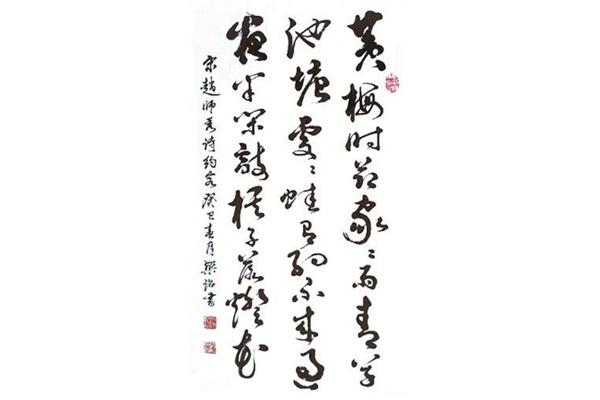 黄梅时节家〻雨青草
池塘处〻蛙有约不来过
夜半闲敲棋子落燈花
宋趙师秀诗约客癸巳春月书